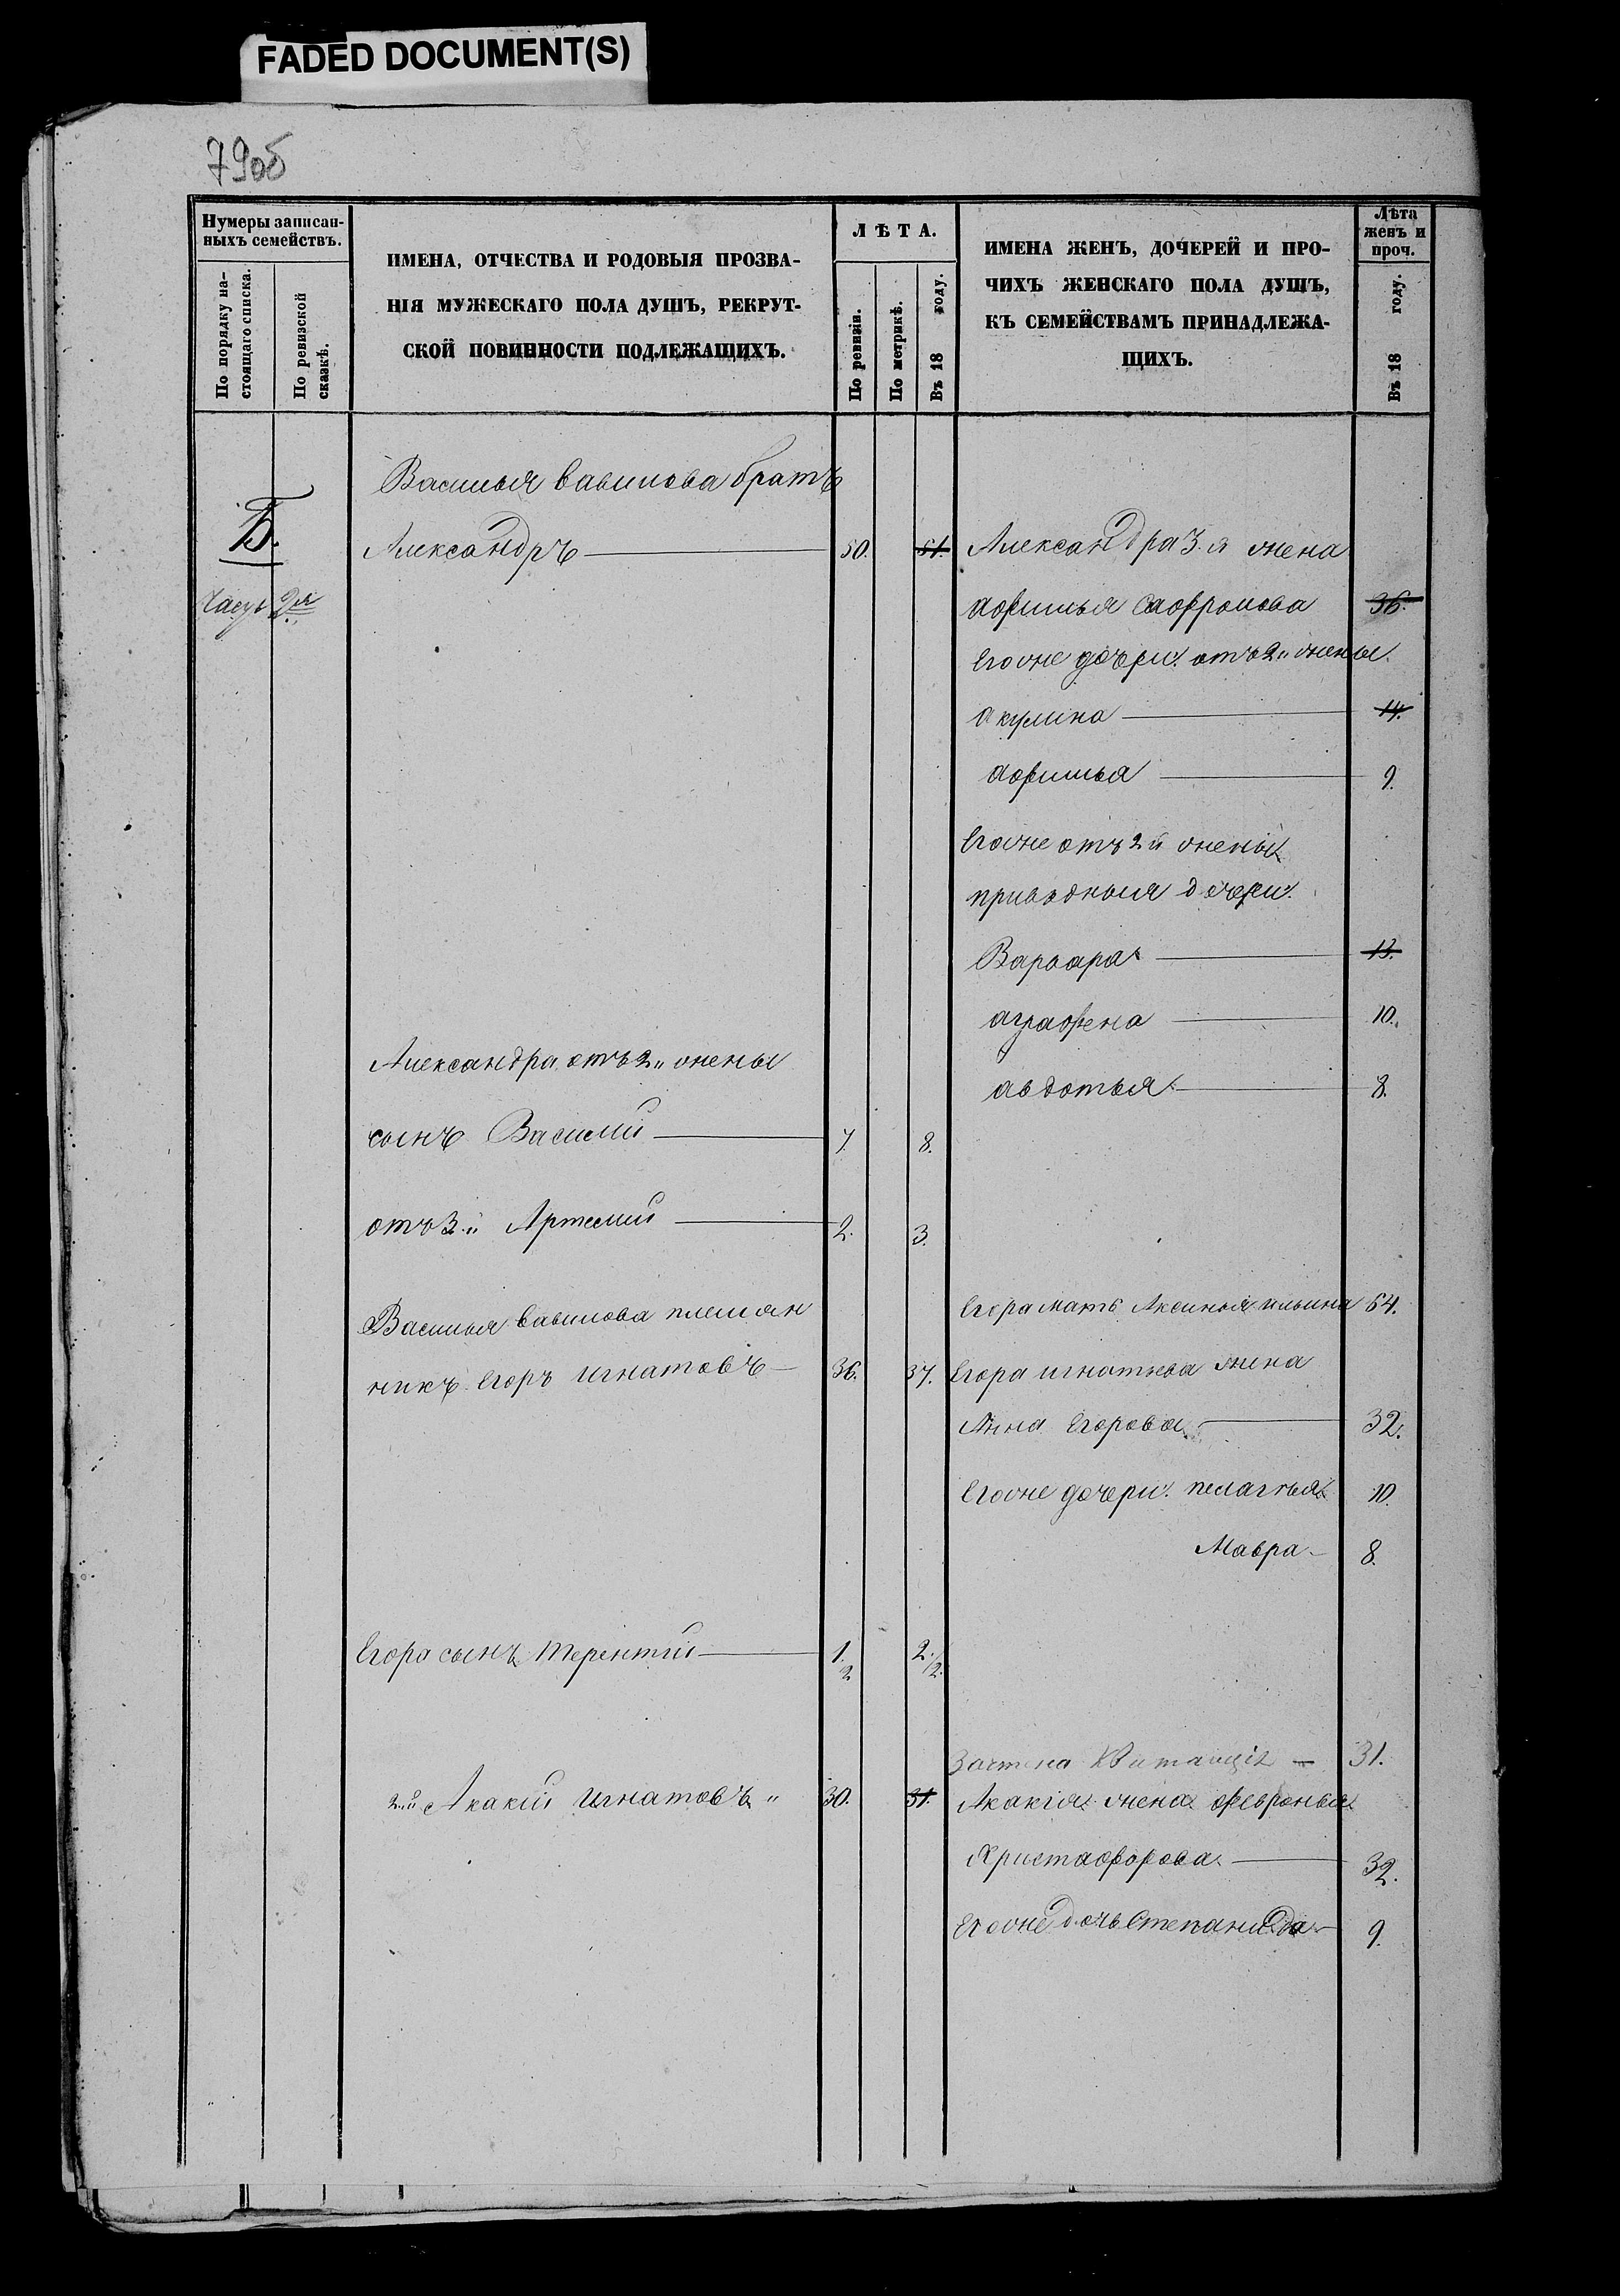 FADED DOCUMENT(S)
79об
Нумеры записан-
ныхъ семействъ.
По порядку на-
стоящаго списка.
По ревизской
сказкѣ.
ИМЕНА, ОТЧЕСТВА И РОДОВЫЯ ПРОЗВА-
НІЯ МУЖЕСКАГО ПОЛА ДУШЪ, РЕКРУТ-
СКОЙ ПОВИННОСТИ ПОДЛЕЖАЩИХЪ.
ЛѢТА.
По ревизіи.
По метрикѣ.
Въ 18 году.
ИМЕНА ЖЕНЪ, ДОЧЕРЕЙ И ПРО-
ЧИХЪ ЖЕНСКАГО ПОЛА ДУШЪ,
КЪ СЕМЕЙСТВАМЪ ПРИНАДЛЕЖА-
ЩИХЪ.
Лѣта
женъ и
проч.
Въ 18 году.
Василья вавилова братъ
Б.
Александръ 50. 51. Александра 3.я жена
Часть 2я
афимья Сафронова 36.
Егоже дочери. отъ 2й жены.
акулина 14.
афимья 9.
Егоже отъ 2й жены
приводныя дочери.
Варвара 13.
аграфена 10.
Александра отъ 2й жены
авдотья 8.
сынъ Василий 7. 8.
отъ 3й Артемий 2. 3.
Егора мать Аксинья ильина 64.
Василья вавилова племян
никъ Егоръ игнатовъ 36. 37. Егора игнатьева жена
Анна Егорова 32.
Егоже дочери. пелагъя 10.
Мавра 8.
Егора сынъ терентий 1/2 2./2.
квитанція 31.
2й Акакий игнатовъ 30. 31. Акакія жена февронья
Христафорова 32.
Егоже дочь Степанида 9.